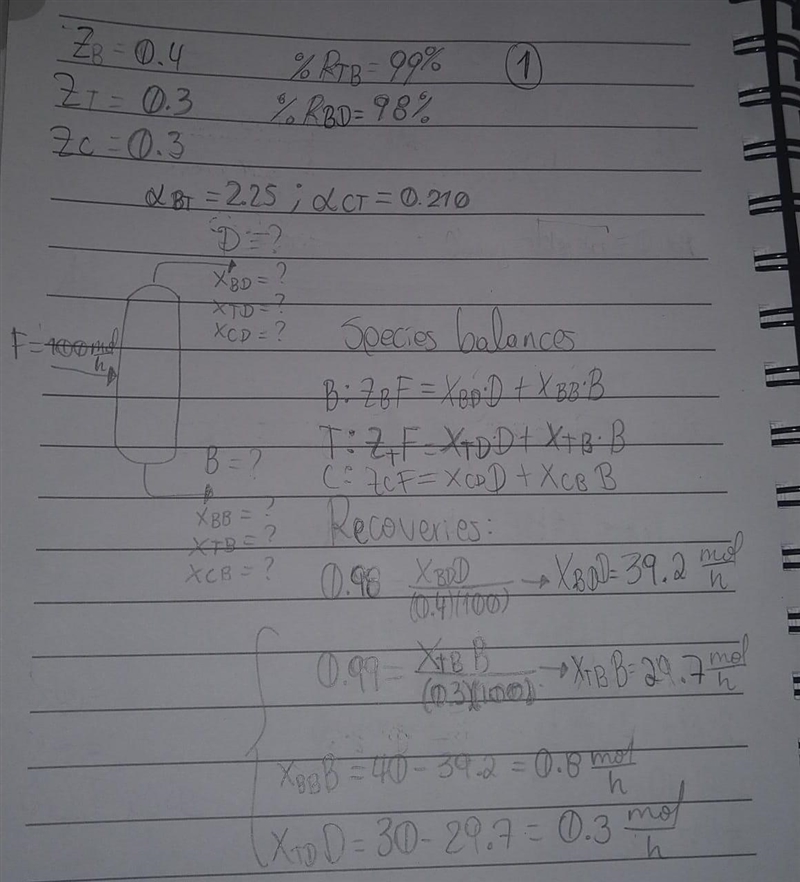 Z_B = 0.4 %R_TB = 99% ①
Z_T = 0.3 %R_BD = 98%
Z_C = 0.3
α_BT = 2.25 ; α_CT = 0.210
D = ?
X_BD = ?
X_TD = ?
X_CD = ?
F = 100 mol/h
Species balances
B: Z_B F = X_BD·D + X_BB·B
T: Z_T F = X_TD D + X_TB·B
C: Z_C F = X_CD D + X_CB B
B = ?
X_BB = ?
X_TB = ?
X_CB = ?
Recoveries:
0.98 X_BD D/(0.4)(100) → X_BD D = 39.2 mol/h
0.99 = X_TB B/(0.3)(100) → X_TB B = 29.7 mol/h
X_BB B = 40 - 39.2 = 0.8 mol/h
X_TD D = 30 - 29.7 = 0.3 mol/h